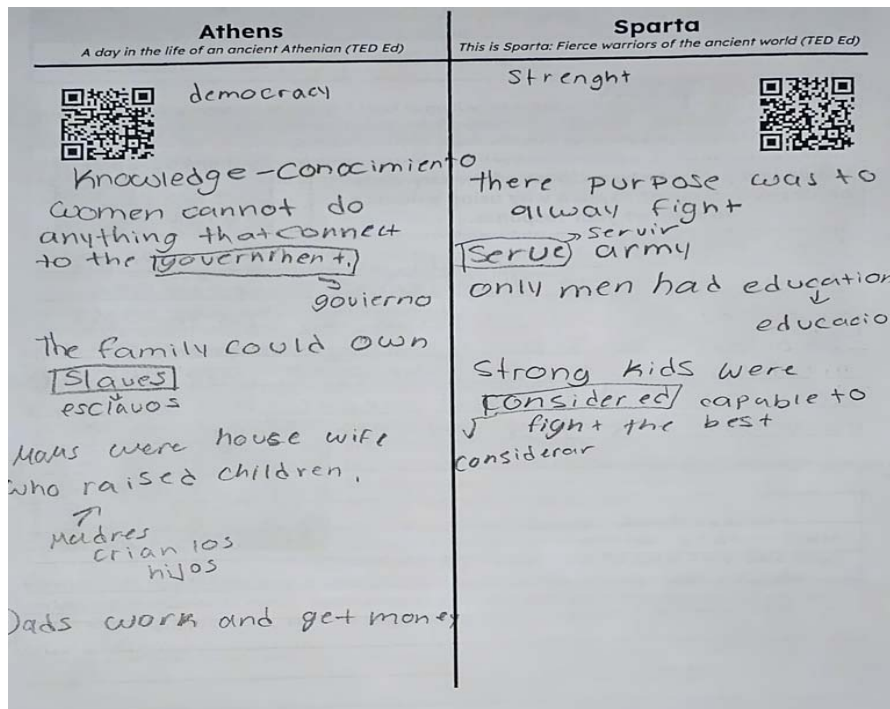 Athens
A day in the life of an ancient Athenian (TED Ed)
democracy
Knowledge - conocimiento
women cannot do
anything that connect
to the government.
govierno
The family could own
Slaves
esclavos
Moms were house wife
who raised children.
Madres
crian los
hijos
Dads work and get money
Sparta
This is Sparta: Fierce warriors of the ancient world (TED Ed)
Strenght
there purpose was to
alway fight
servir
Serve army
only men had education
educacio
Strong kids were
considered capable to
fight the best
considerar